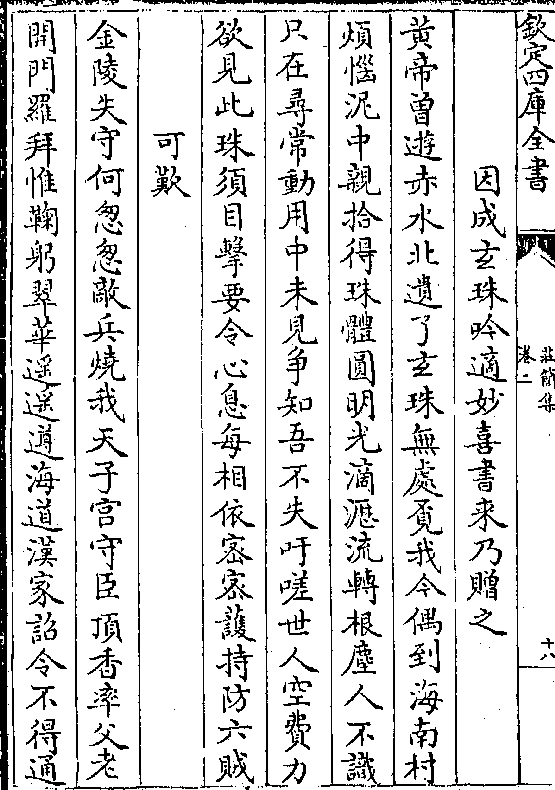 欽定四庫全書
莊簡集
卷二
十八
因成玄珠吟適妙喜書来乃贈之
黄帝曽遊赤水北遺了玄珠無處覔我今偶到海南村
煩惱泥中親拾得珠體圓明光滴瀝流轉根塵人不識
只在尋常動用中未見争知吾不失吁嗟世人空費力
欲見此珠須目擊要令心息每相依宻宻護持防六賊
可歎
金陵失守何怱怱敵兵燒我天子宫守臣頂香率父老
開門羅拜惟鞠躬翠華遥遥遵海道漢家詔令不得通